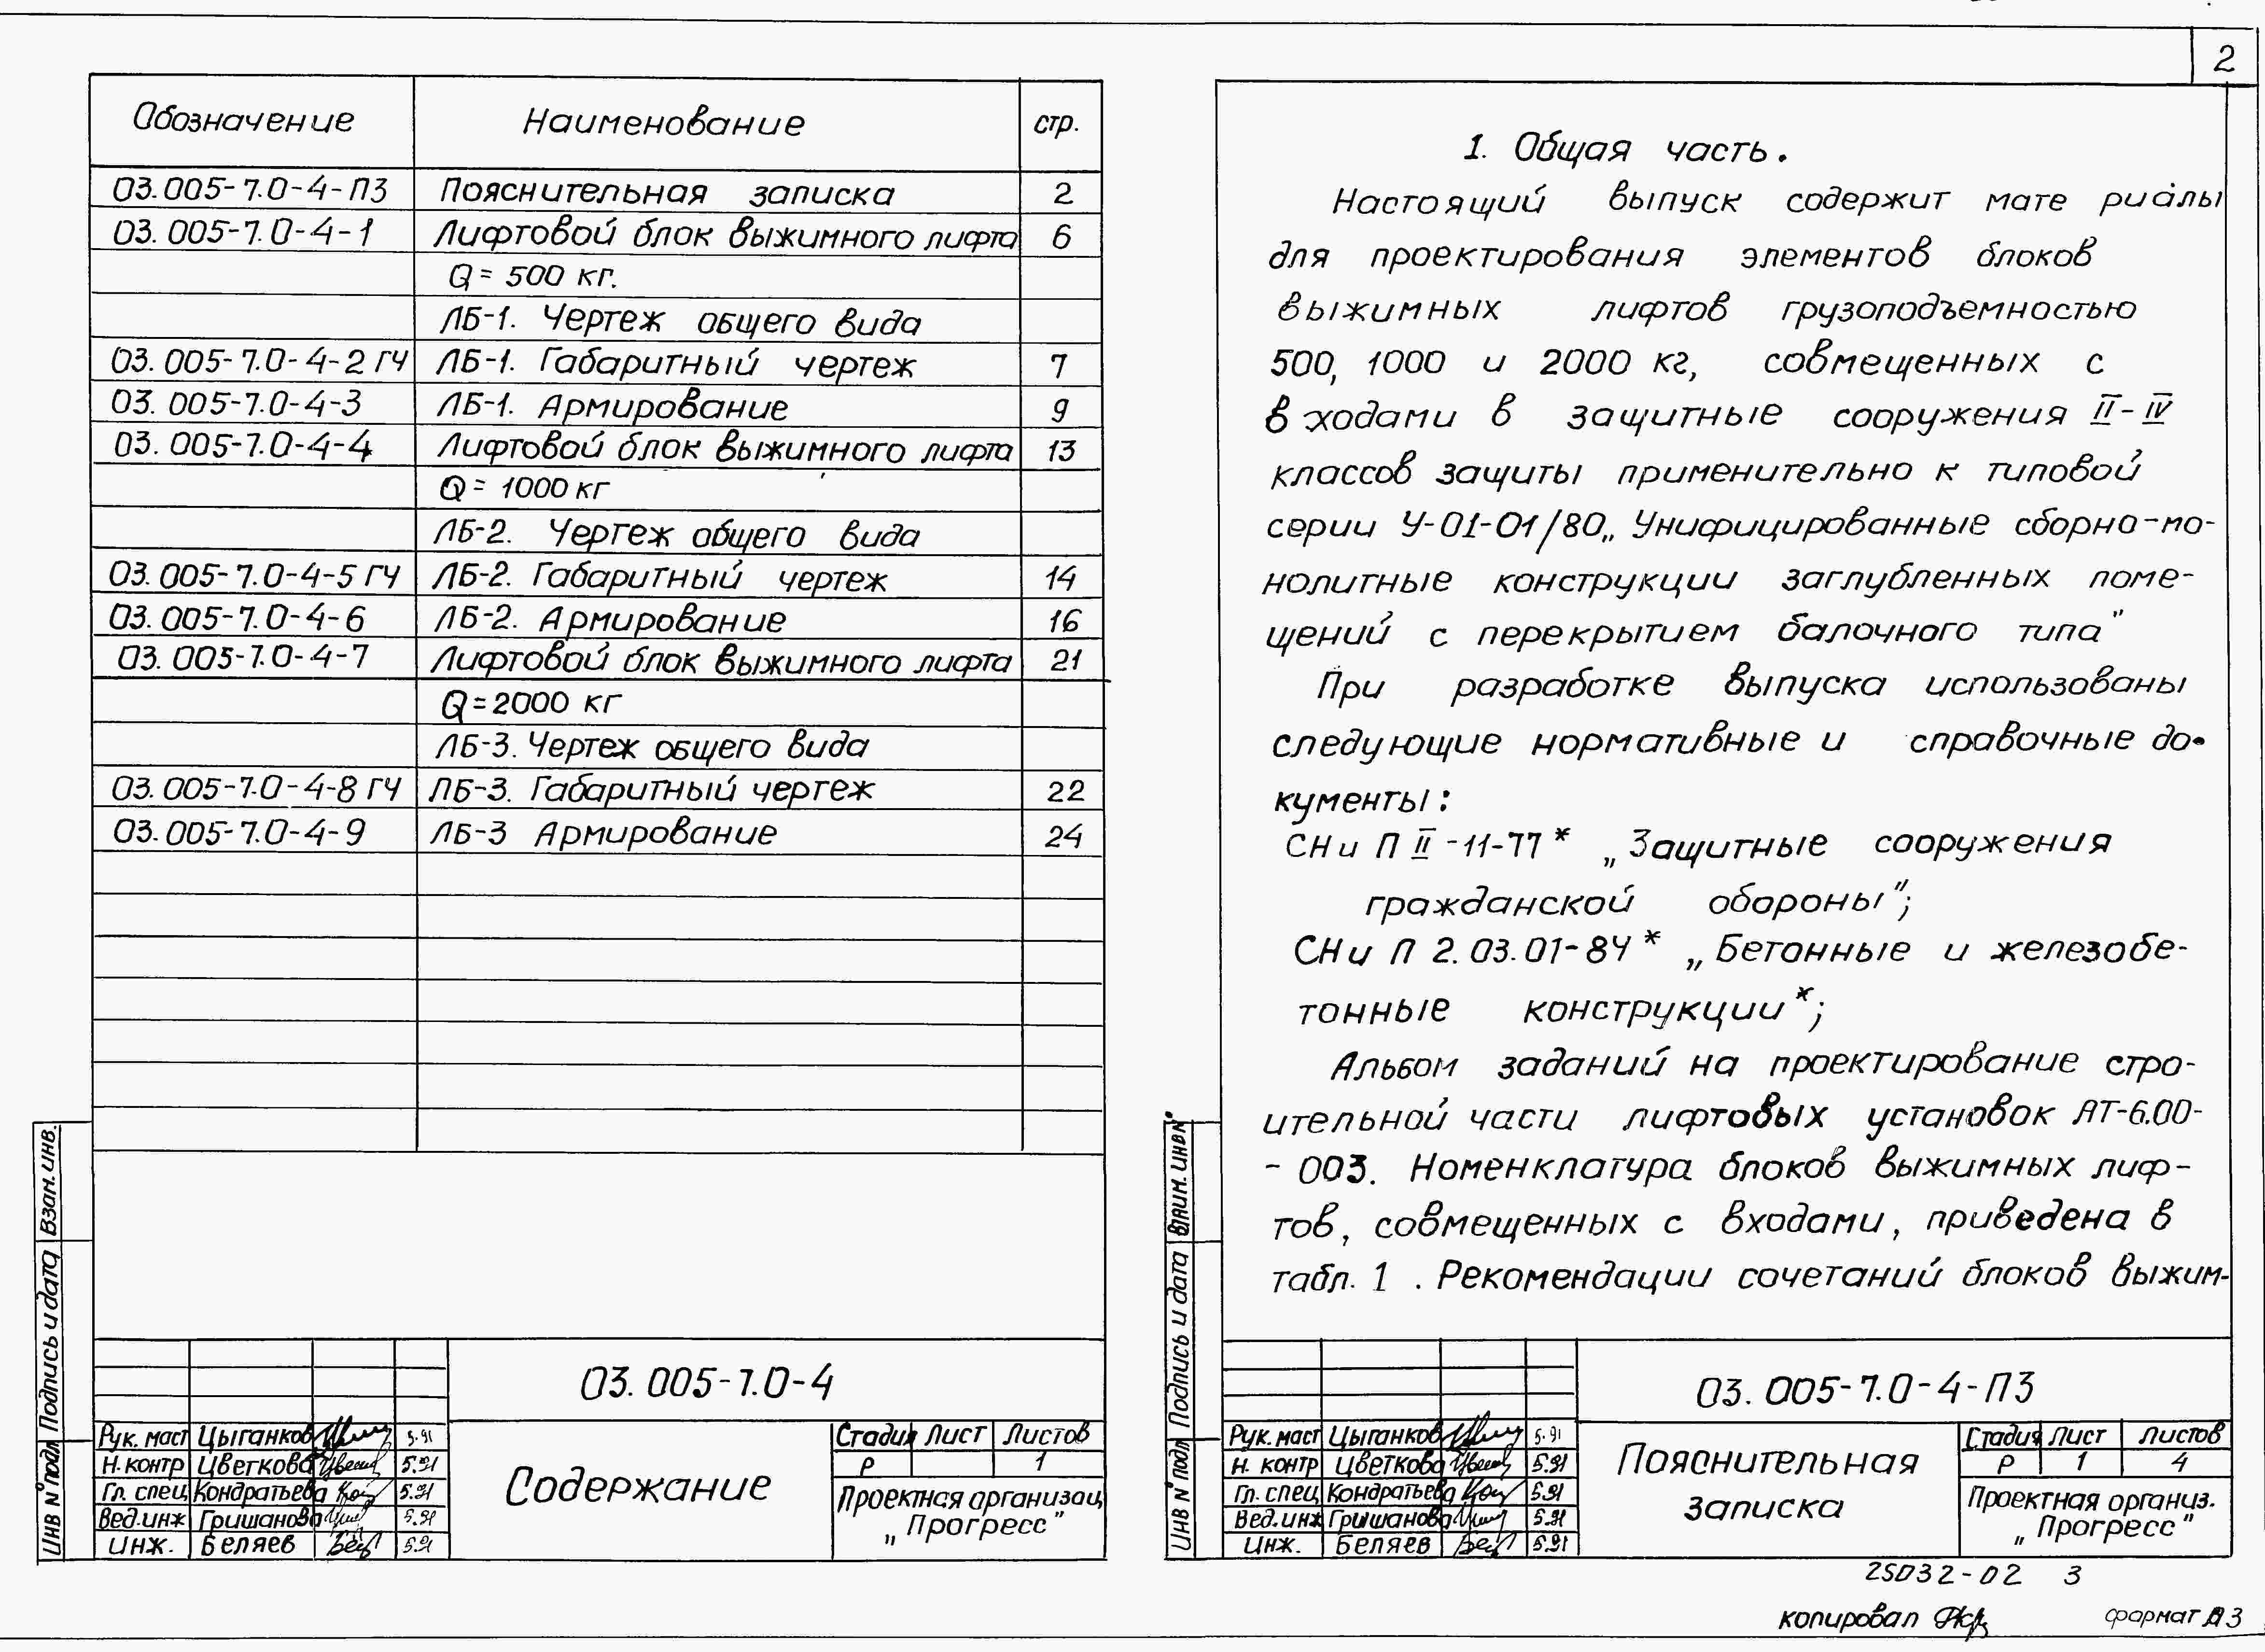 2
Обозначение Наименование стр.
03.005-7.0-4-ПЗ Пояснительная записка 2
03.005-7.0-4-1 Лифтовой блок выжимного лифта 6
Q = 500 кг.
ЛБ-1. Чертеж общего вида
03.005-7.0-4-2 ГЧ ЛБ-1. Габаритный чертеж 7
03.005-7.0-4-3 ЛБ-1. Армирование 9
03.005-7.0-4-4 Лифтовой блок выжимного лифта 13
Q = 1000 кг
ЛБ-2. Чертеж общего вида
03.005-7.0-4-5 ГЧ ЛБ-2. Габаритный чертеж 14
03.005-7.0-4-6 ЛБ-2. Армирование 16
03.005-7.0-4-7 Лифтовой блок выжимного лифта 21
Q = 2000 кг
ЛБ-3. Чертеж общего вида
03.005-7.0-4-8 ГЧ ЛБ-3. Габаритный чертеж 22
03.005-7.0-4-9 ЛБ-3 Армирование 24
Инв N подл Подпись и дата Взан. инв.
03.005-7.0-4
Рук. маст Цыганков 5.91
Н. контр Цветкова 5.91
Гл. спец Кондратьева 5.91
Вед. инж Гришанова 5.91
Инж. Беляев 5.91
Содержание
Стадия Лист Листов
Р 1
Проектная организац.
„Прогресс"
1. Общая часть.
Настоящий выпуск содержит мате риалы
для проектирования элементов блоков
выжимных лифтов грузоподъемностью
500, 1000 и 2000 кг, совмещенных с
входами в защитные сооружения II-IV
классов защиты применительно к типовой
серии У-01-01/80 „Унифицированные сборно-мо-
нолитные конструкции заглубленных поме-
щений с перекрытием балочного типа"
При разработке выпуска использованы
следующие нормативные и справочные до-
кументы:
СНиП II-11-77* „Защитные сооружения
гражданской обороны";
СНиП 2.03.01-84* „Бетонные и железобе-
тонные конструкции*;
Альбом заданий на проектирование стро-
ительной части лифтовых установок АТ-6.00-
-003. Номенклатура блоков выжимных лиф-
тов, совмещенных с входами, приведена в
табл. 1. Рекомендации сочетаний блоков выжим-
Инв N подл Подпись и дата Взаин. инв N
03.005-7.0-4-ПЗ
Рук. маст Цыганков 5.91
Н. контр Цветкова 5.91
Гл. спец Кондратьева 5.91
Вед. инж Гришанова 5.91
Инж. Беляев 5.91
Пояснительная
записка
Стадия Лист Листов
Р 1 4
Проектная организ.
„Прогресс"
25032-02 3
копировал формат А3